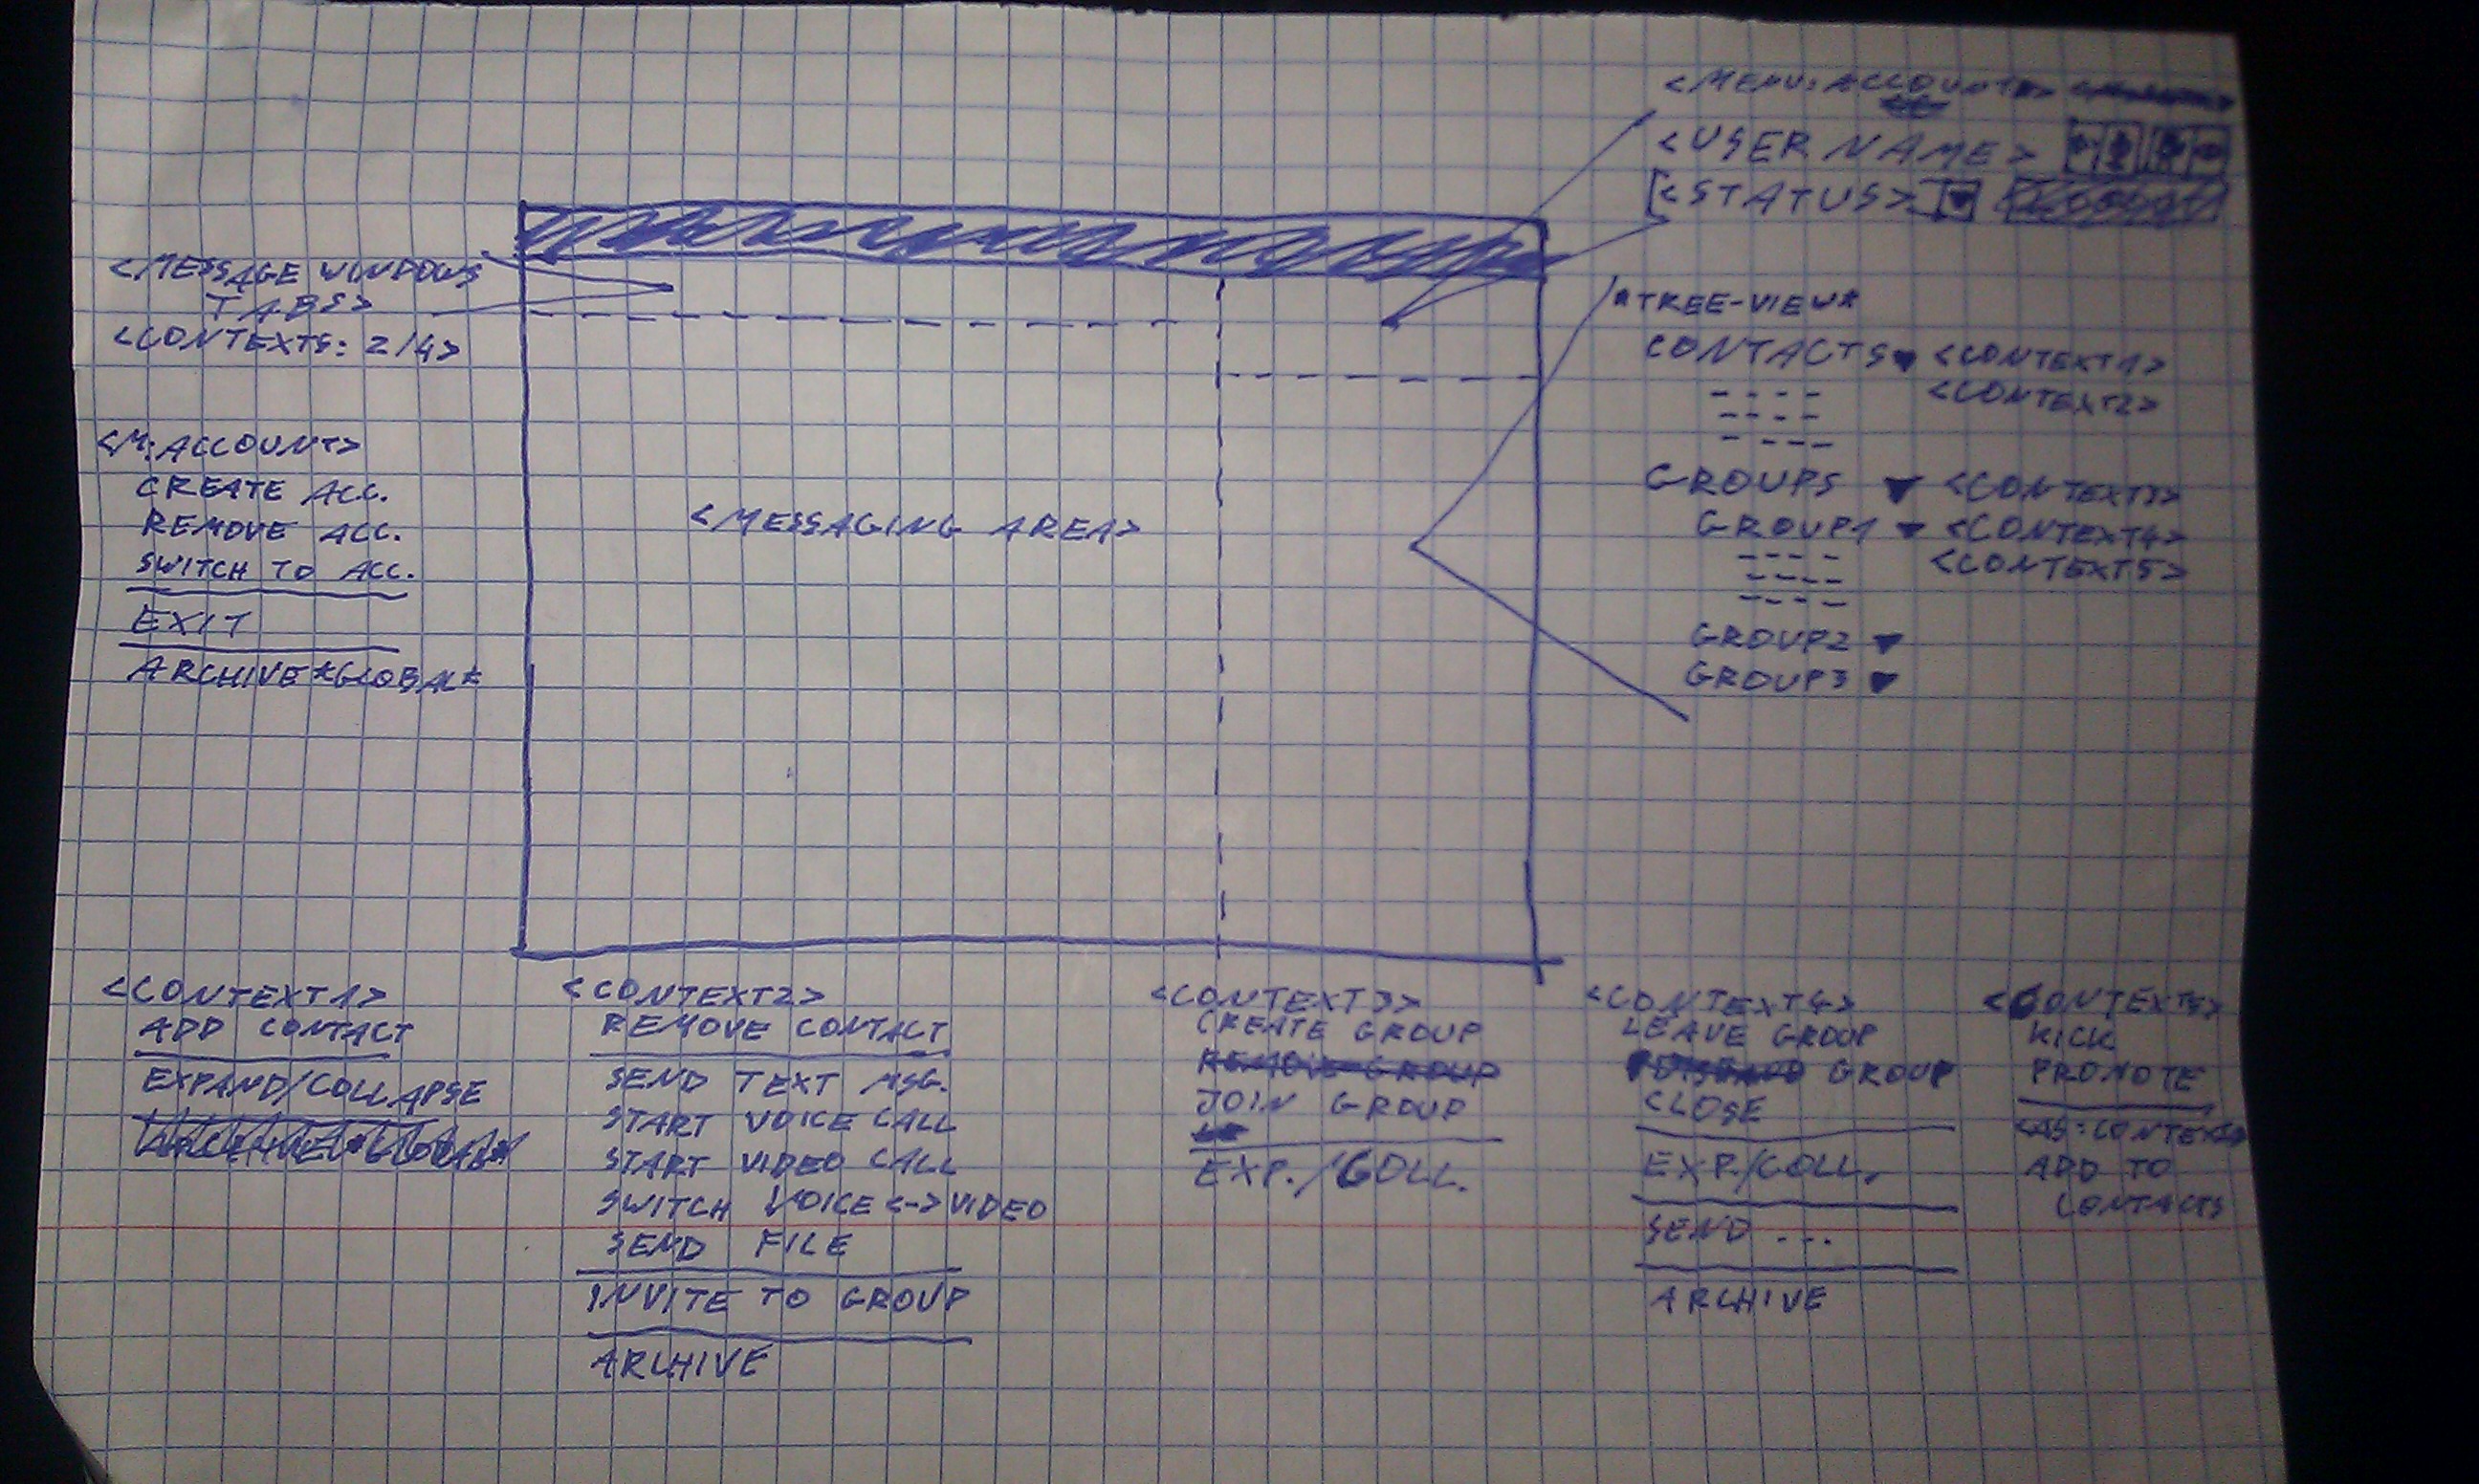 <MENU: ACCOUNT>
<USER NAME>
[<STATUS>
<MESSAGE WINDOWS
TABS>
<CONTEXTS: 2/4>
<M: ACCOUNT>
CREATE ACC.
REMOVE ACC.
SWITCH TO ACC.
EXIT
ARCHIVE *GLOBAL*
<MESSAGING AREA>
*TREE-VIEW*
CONTACTS ▼ <CONTEXT1>
<CONTEXT2>
GROUPS ▼ <CONTEXT3>
GROUP1 ▼ <CONTEXT4>
<CONTEXT5>
GROUP2 ▼
GROUP3 ▼
<CONTEXT1>
ADD CONTACT
EXPAND/COLLAPSE
<CONTEXT2>
REMOVE CONTACT
SEND TEXT MSG.
START VOICE CALL
START VIDEO CALL
SWITCH VOICE <-> VIDEO
SEND FILE
INVITE TO GROUP
ARCHIVE
<CONTEXT3>
CREATE GROUP
REMOVE GROUP
JOIN GROUP
EXP./COLL.
<CONTEXT4>
LEAVE GROUP
GROUP
CLOSE
EXP./COLL.
SEND ...
ARCHIVE
<CONTEXT5>
KICK
PROMOTE
ADD TO
CONTACTS